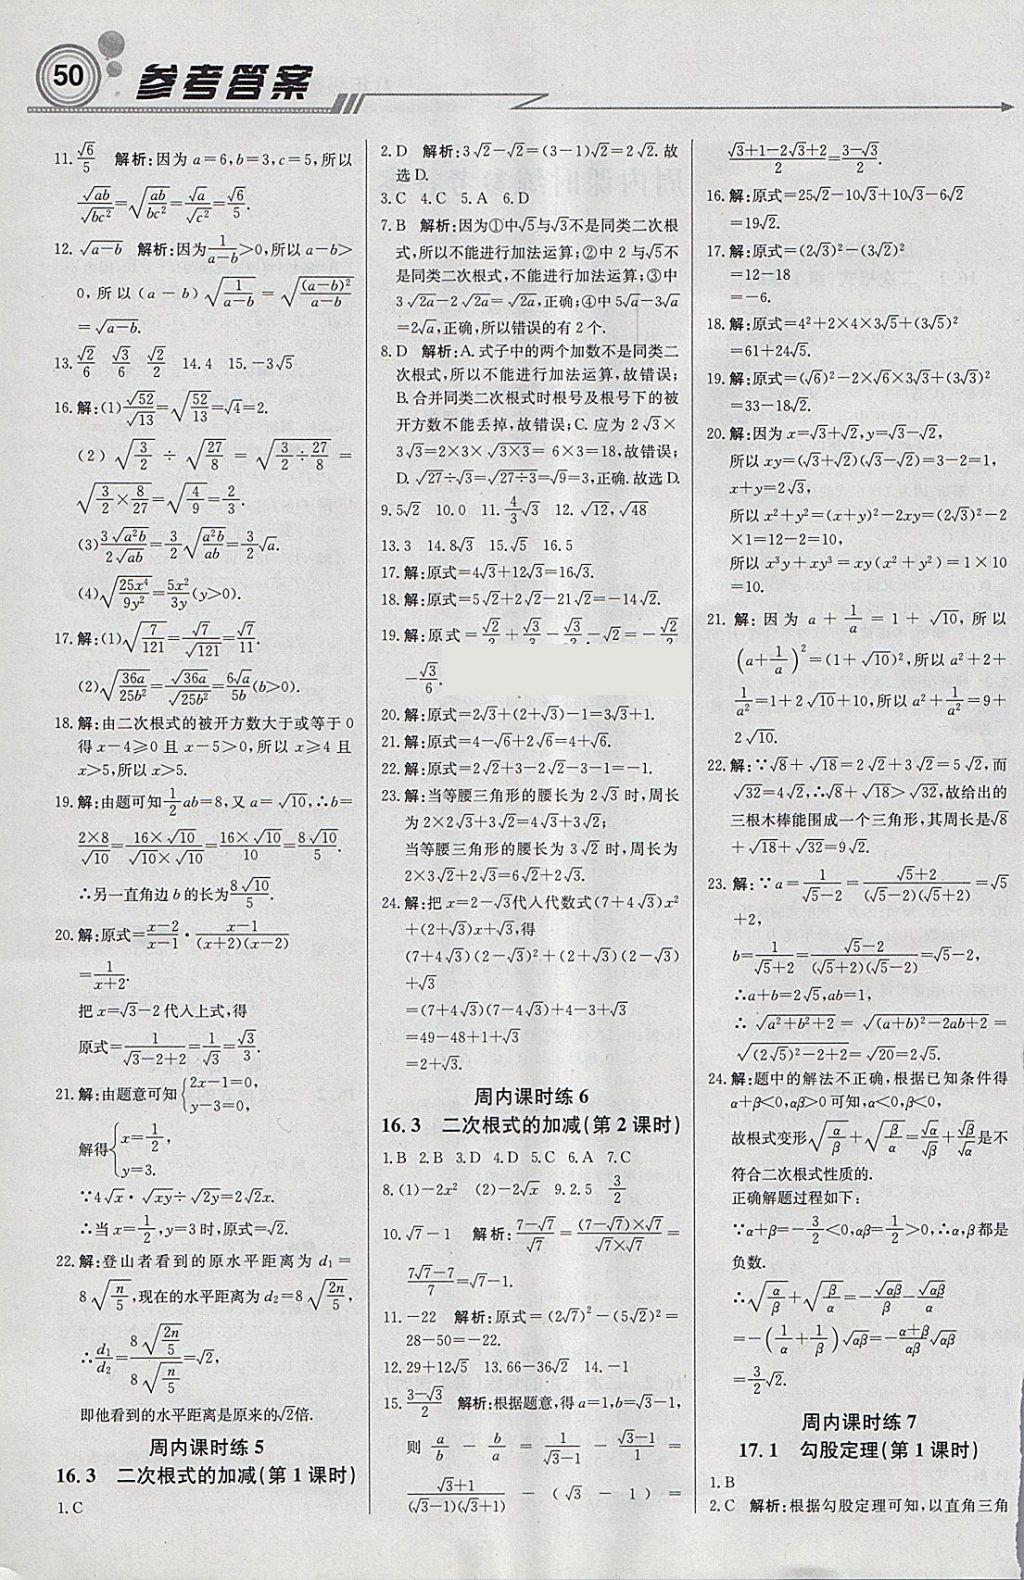 50 参考答案
11. √6/5　解析:因为 a=6,b=3,c=5,所以
√ab/√bc² = √(ab/bc²) = √(a/c²) = √6/5.
12. √(a-b)　解析:因为1/(a-b)>0,所以 a-b>
0,所以(a-b)√(1/(a-b)) = √((a-b)²/(a-b))
=√(a-b).
13. √2/6　√3/6　√2/2　14. 4　15. -3√5
16. 解:(1)√52/√13=√(52/13)=√4=2.
(2)√(3/2)÷√(27/8)=√(3/2÷27/8)=
√(3/2×8/27)=√(4/9)=2/3.
(3)3√(a²b)/2√(ab)=3/2√(a²b/ab)=3/2√a.
(4)√(25x⁴/9y²)=5x²/3y(y>0).
17. 解:(1)√(7/121)=√7/√121=√7/11.
(2)√(36a/25b²)=√36a/√25b²=6√a/5b(b>0).
18. 解:由二次根式的被开方数大于或等于 0
得 x-4⩾0 且 x-5>0,所以 x⩾4 且
x>5,所以 x>5.
19. 解:由题可知1/2ab=8,又 a=√10,∴b=
2×8/√10=16×√10/(√10×√10)=16×√10/10=8√10/5.
∴另一直角边 b 的长为8√10/5.
20. 解:原式=(x-2)/(x-1)·(x-1)/((x+2)(x-2))
=1/(x+2).
把 x=√3-2代入上式,得
原式=1/(√3-2+2)=1/√3=√3/3.
21. 解:由题意可知{2x-1=0, y-3=0,
解得{x=1/2, y=3.
∵4√x·√xy÷√2y=2√2x.
∴当 x=1/2,y=3时,原式=√2.
22. 解:登山者看到的原水平距离为 d₁=
8√(n/5),现在的水平距离为 d₂=8√(2n/5),
∴d₁/d₂=8√(2n/5)/8√(n/5)=√2,
即他看到的水平距离是原来的√2倍.
周内课时练 5
16. 3　二次根式的加减(第 1 课时)
1. C
2. D　解析:3√2-√2=(3-1)√2=2√2.故
选 D.
3. C　4. C　5. A　6. D
7. B　解析:因为①中√5与√3不是同类二次根
式,所以不能进行加法运算;②中 2 与√5不
是同类二次根式,不能进行加法运算;③中
3√2a-2√2a=√2a,正确;④中5√a-3√a
=2√a,正确,所以错误的有 2 个.
8. D　解析:A. 式子中的两个加数不是同类二
次根式,所以不能进行加法运算,故错误;
B. 合并同类二次根式时根号及根号下的被
开方数不能丢掉,故错误;C. 应为 2√3×
3√3=2×3×√(3×3)=6×3=18,故错误;
D. √27÷√3=√(27÷3)=√9=3,正确.故选 D.
9. 5√2　10. 0　11. 4/3√3　12. √12,√48
13. 3　14. 8√3　15. √5　16. 5
17. 解:原式=4√3+12√3=16√3.
18. 解:原式=5√2+2√2-21√2=-14√2.
19. 解:原式=√2/2+√3/3-√3/2-√2=-√2/2
-√3/6.
20. 解:原式=2√3+(2+√3)-1=3√3+1.
21. 解:原式=4-√6+2√6=4+√6.
22. 解:原式=2√2+3-2√2-3-1=-1.
23. 解:当等腰三角形的腰长为 2√3 时,周长
为 2×2√3+3√2=4√3+3√2;
当等腰三角形的腰长为 3√2 时,周长为
2×3√2+2√3=6√2+2√3.
24. 解:把 x=2-√3代人代数式(7+4√3)x²
+(2+√3)x+√3,得
(7+4√3)(2-√3)²+(2+√3)(2-√3)
+√3
=(7+4√3)(7-4√3)+4-3+√3
=49-48+1+√3
=2+√3.
周内课时练 6
16. 3　二次根式的加减(第 2 课时)
1. B　2. B　3. D　4. D　5. C　6. A　7. C
8. (1)-2x²　(2)-2√x　9. 2. 5　3/2
10. √7-1　解析:(7-√7)/√7=(7-√7)×√7/(√7×√7)=
(7√7-7)/7=√7-1.
11. -22　解析:原式=(2√7)²-(5√2)²=
28-50=-22.
12. 29+12√5　13. 66-36√2　14. -1
15. (3-√3)/2　解析:根据题意,得 a=1,b=√3-1,
则 a/b - b/a = 1/(√3-1) - (√3-1)/1 =
(√3+1)/((√3-1)(√3+1)) - (√3-1) =
(√3+1-2√3+2)/2=(3-√3)/2.
16. 解:原式=25√2-10√3+10√3-6√2
=19√2.
17. 解:原式=(2√3)²-(3√2)²
=12-18
=-6.
18. 解:原式=4²+2×4×3√5+(3√5)²
=61+24√5.
19. 解:原式=(√6)²-2×√6×3√3+(3√3)²
=33-18√2.
20. 解:因为 x=√3+√2,y=√3-√2,
所以 xy=(√3+√2)(√3-√2)=3-2=1,
x+y=2√3,
所以 x²+y²=(x+y)²-2xy=(2√3)²-2
×1=12-2=10,
所以 x³y+xy³=xy(x²+y²)=1×10
=10.
21. 解:因为 a+1/a=1+√10,所以
(a+1/a)²=(1+√10)²,所以 a²+2+
1/a²=1+2√10+10,所以 a²+1/a²=9+
2√10.
22. 解:∵√8+√18=2√2+3√2=5√2,而
√32=4√2,∴√8+√18>√32,故给出的
三根木棒能围成一个三角形,其周长是√8
+√18+√32=9√2.
23. 解:∵a=1/(√5-2)=(√5+2)/((√5-2)(√5+2))=√5
+2,
b=1/(√5+2)=(√5-2)/((√5+2)(√5-2))=√5-2,
∴a+b=2√5,ab=1,
∴√(a²+b²+2)=√((a+b)²-2ab+2)=
√((2√5)²-2+2)=√20=2√5.
24. 解:题中的解法不正确,根据已知条件得
α+β<0,αβ>0可知,α<0,β<0,
故根式变形√(α/β)+√(β/α)=√α/√β+√β/√α是不
符合二次根式性质的.
正确解题过程如下:
∵α+β=-3/2<0,αβ=1/4>0,∴α,β都是
负数.
∴√(α/β)+√(β/α)=-√αβ/β-√αβ/α
=-(1/α+1/β)√αβ=-(α+β)/αβ√αβ
=3/2√2.
周内课时练 7
17. 1　勾股定理(第 1 课时)
1. B
2. C　解析:根据勾股定理可知,以直角三角